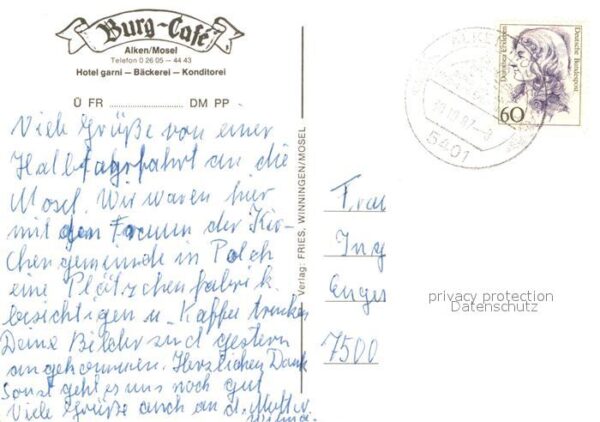 Burg-Café
Alken/Mosel
Telefon 0 26 05 — 44 43
Hotel garni — Bäckerei — Konditorei
Ü FR .................... DM PP
Viele Grüße von einer
Halbtagsfahrt an die
Mosel. Wir waren hier
mit den Frauen der Kir-
chengemeinde in Polch
eine Plätzchenfabrik
besichtigen u. Kaffee trinken
Deine Bilder sind gestern
angekommen. Herzlichen Dank
Sonst geht es uns noch gut
Viele Grüße auch an d. Mutter
Verlag: FRIES, WINNINGEN/MOSEL
ALKEN
87
5401
Deutsche Bundespost
Dorothea Erxleben
60
Frau
Ing
Enges
7500
privacy protection
Datenschutz